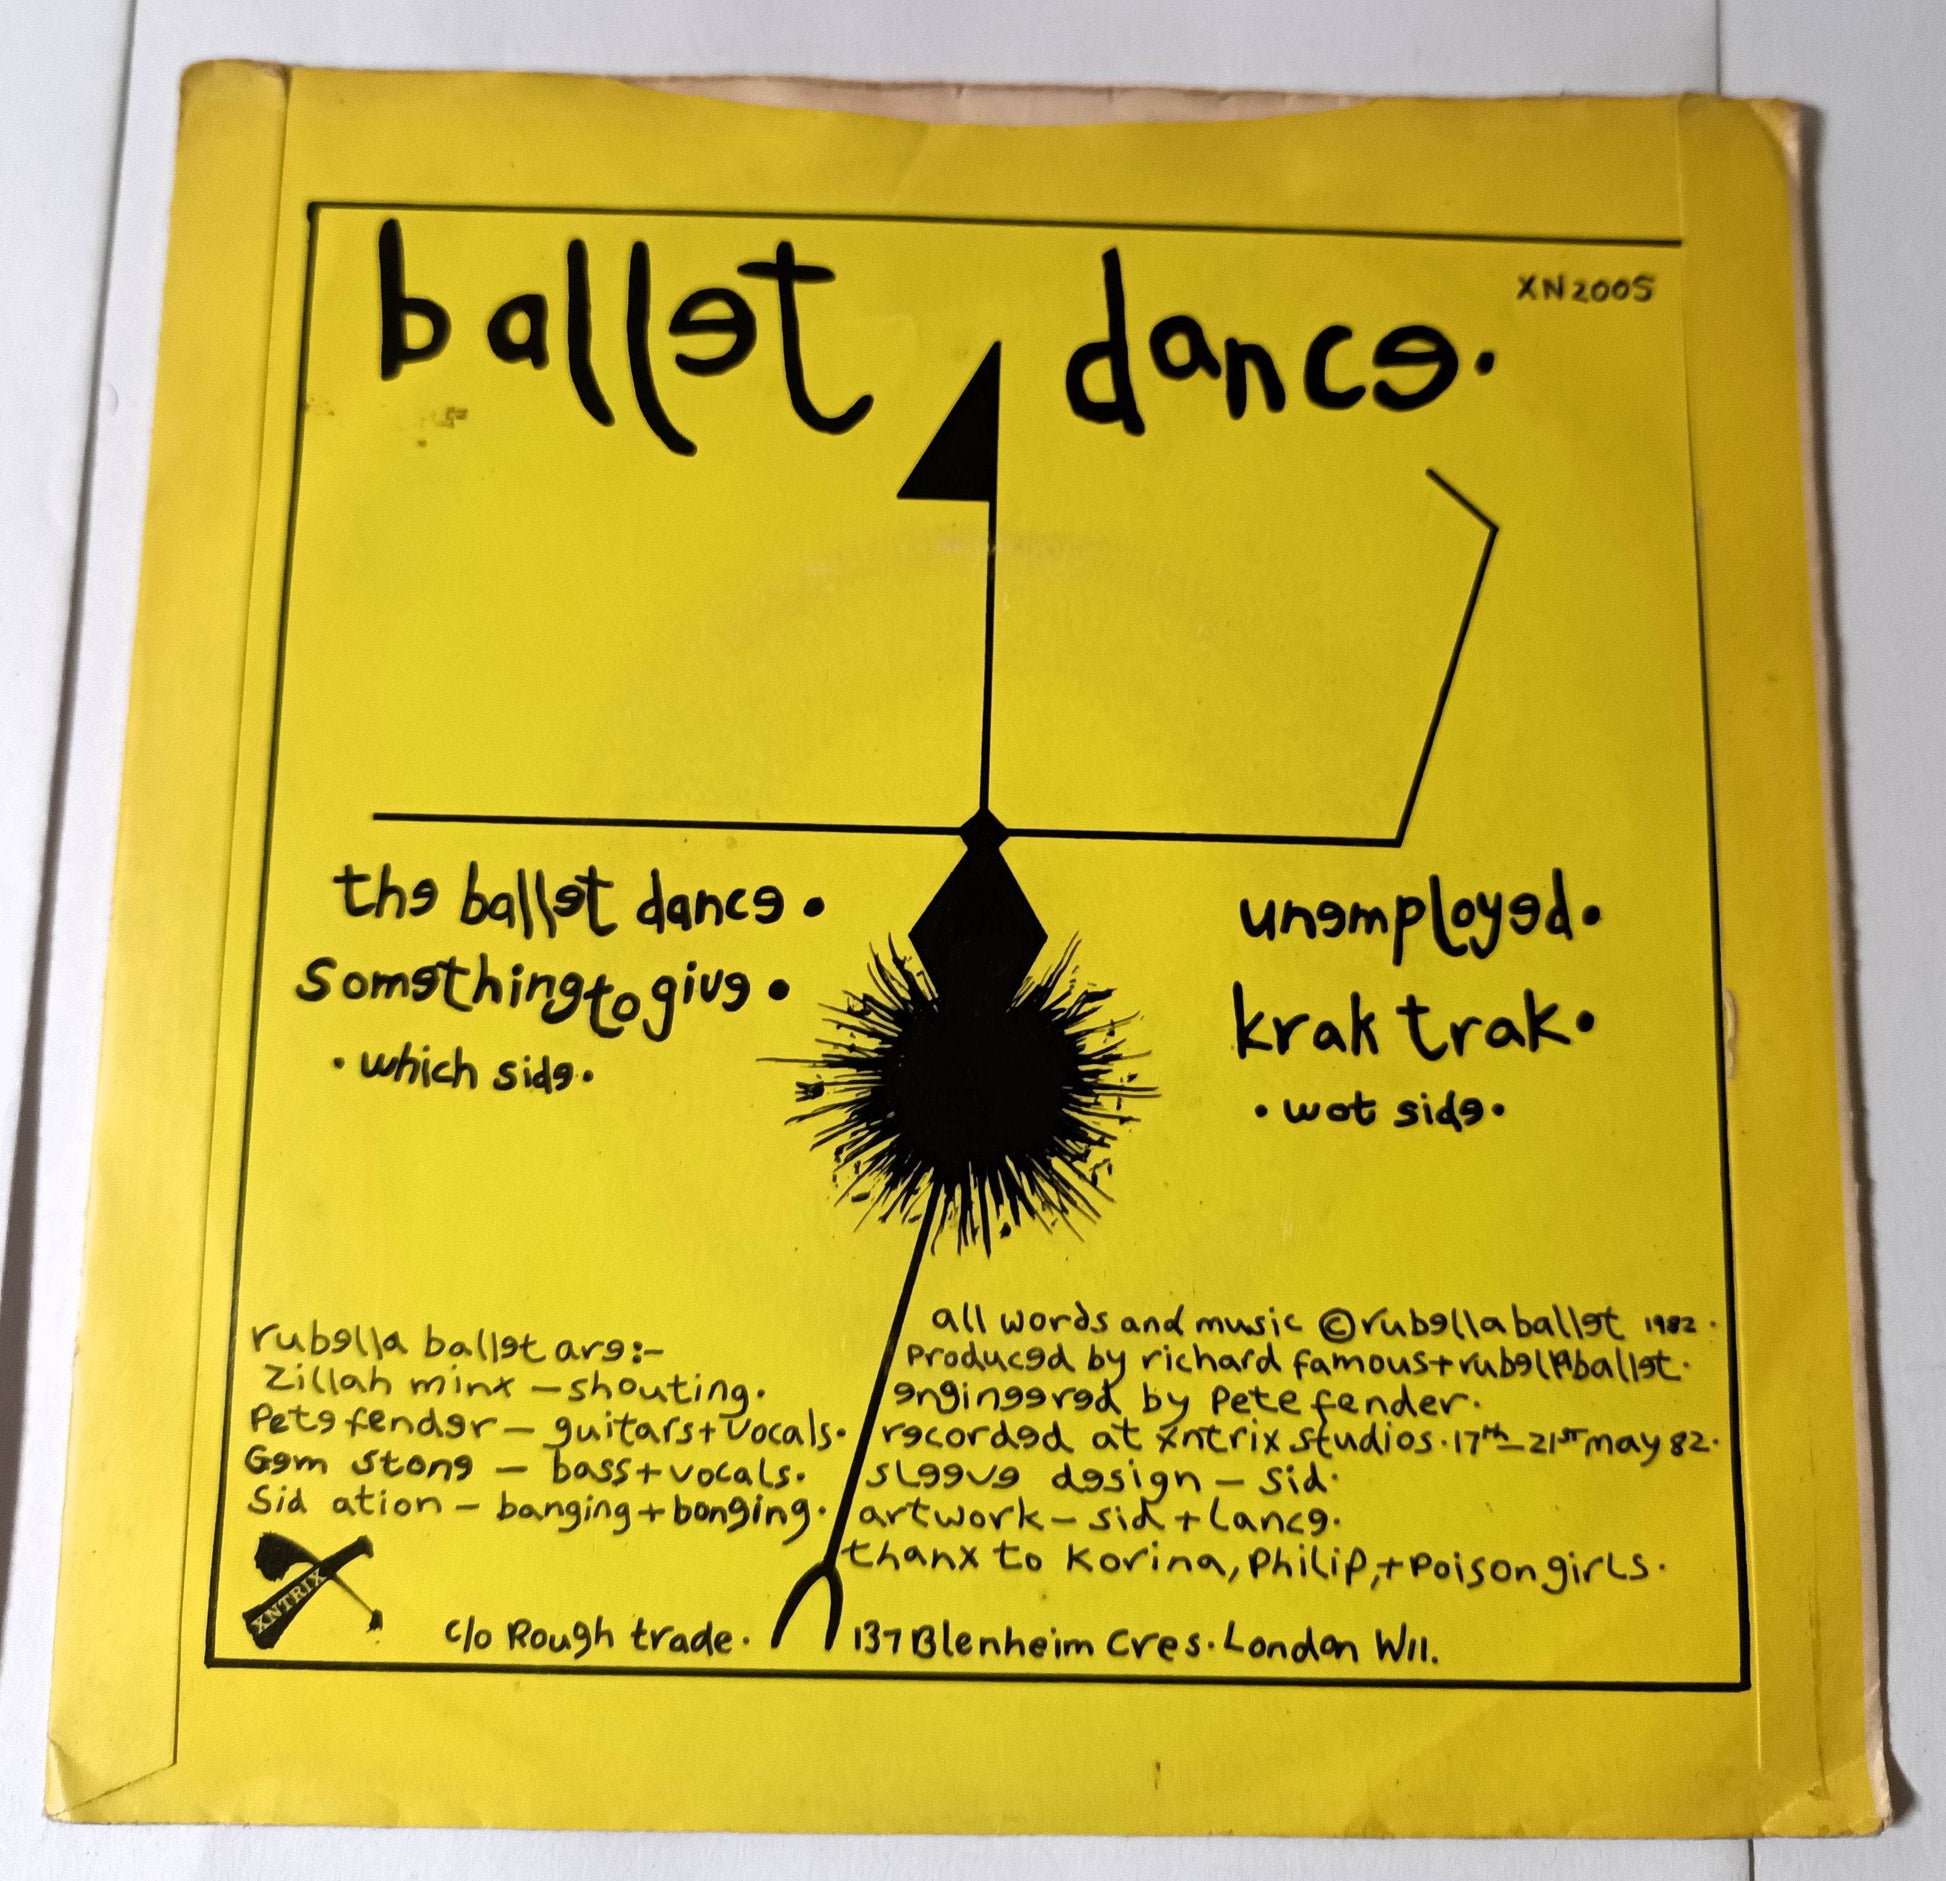 ballet dance.
XN2005
the ballet dance.
something to give.
. which side.
unemployed.
krak trak.
. wot side.
rubella ballet are:-
Zillah minx - shouting.
Pete fender - guitars + vocals.
Gem stone - bass + vocals.
Sid ation - banging + bonging.
XNTRIX
all words and music © rubella ballet 1982.
Produced by richard famous + rubella ballet.
engineered by Pete fender.
recorded at xntrix studios. 17th - 21st may 82.
sleeve design - sid.
artwork - sid + lance.
thanx to Korina, Philip, + Poison girls.
c/o Rough trade. 137 Blenheim Cres. London W11.